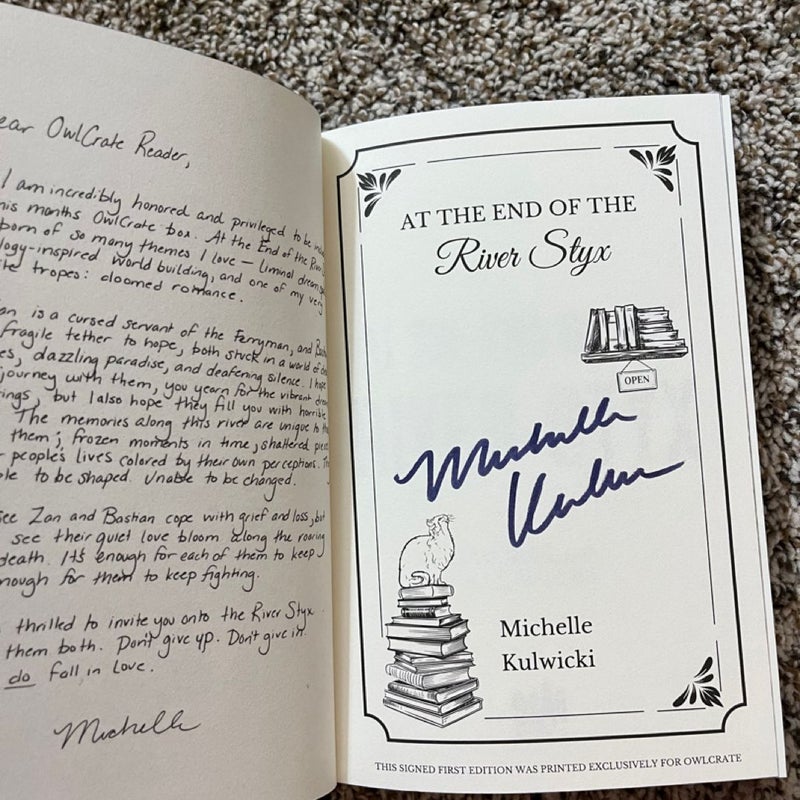 ear OwlCrate Reader,
I am incredibly honored and privileged to be
his months OwlCrate box. At the End of the River
born of so many themes I love — liminal
logy-inspired world building, and one of my very
ite tropes: doomed romance.
an is a cursed servant of the Ferryman, and
fragile tether to hope, both stuck in a world of
es, dazzling paradise, and deafening silence. I hope
journey with them, you yearn for the vibrant
ings, but I also hope they fill you with horrible
The memories along this river are unique to
them; frozen moments in time, shattered
people's lives colored by their own perceptions.
ble to be shaped. Unable to be changed.
see Zan and Bastian cope with grief and loss, but
see their quiet love bloom along the roaring
death. It's enough for each of them to keep
nough for them to keep fighting.
thrilled to invite you onto the River Styx
them both. Don't give up. Don't give in.
do fall in love.
Michelle
AT THE END OF THE
River Styx
OPEN
Michelle
Kulwicki
Michelle
Kulwicki
THIS SIGNED FIRST EDITION WAS PRINTED EXCLUSIVELY FOR OWLCRATE